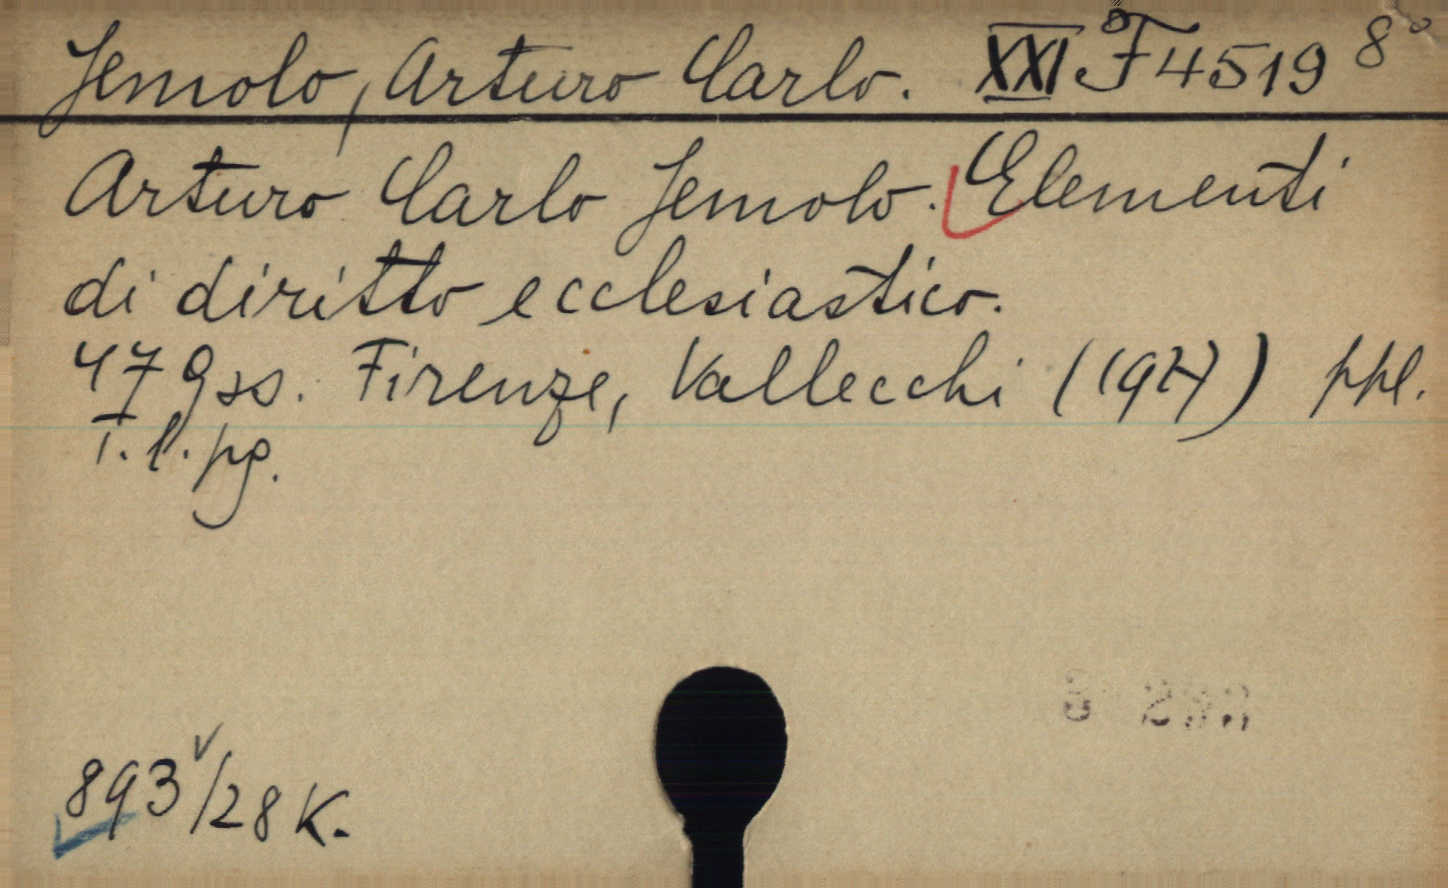 Jemolo, Arturo Carlo. XXI F 4519 8°
Arturo Carlo Jemolo. Elementi
di diritto ecclesiastico.
479 ss. Firenze, Vallecchi (1927) ppl.
T. l. pg.
893 V/28 K.